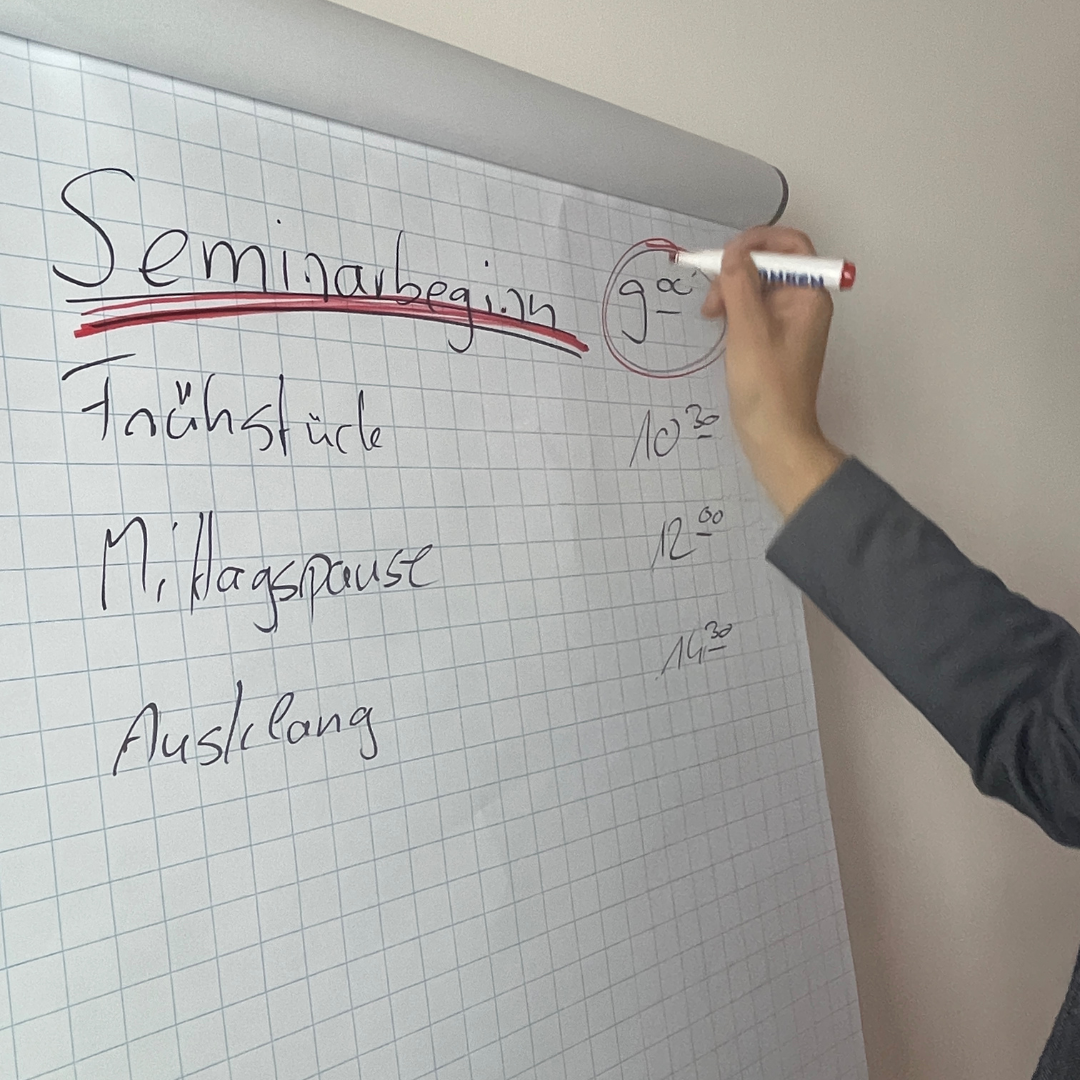 Seminarbeginn 9 00
Frühstück 10 30
Mittagspause 12 00
Ausklang 14 30